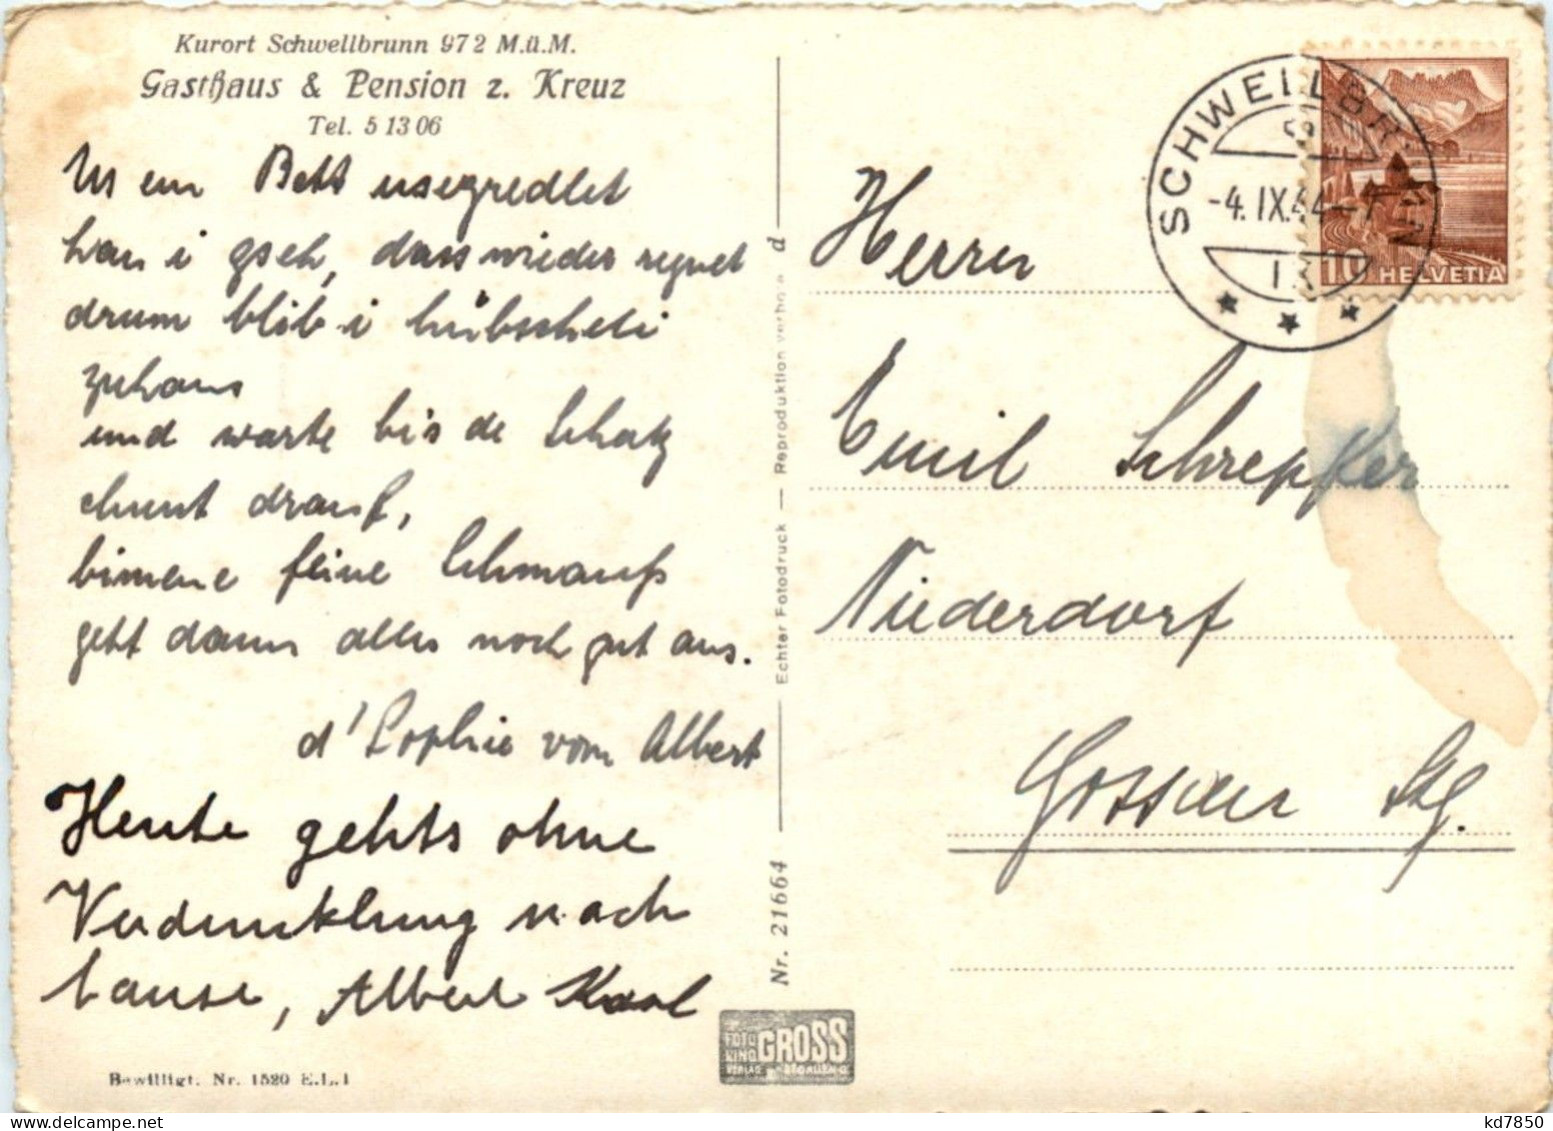 Kurort Schwellbrunn 972 M.ü.M.
Gasthaus & Pension z. Kreuz
Tel. 5 13 06
Us em Bett usegredlet
han i gseh, dass wieder regnet
drum blib i hübscheli
zuhaus
und warte bis de Schatz
chunt drauf,
bimene feine Schmauß
geht dann alles noch gut aus.
d'Sophie vom Albert
Heute gehts ohne
Verdunklung nach
hause, Albert Karl
Bewilligt. Nr. 1520 E.L.1
Nr. 21664 — Echter Fotodruck — Reproduktion verboten
FOTO GROSS
VERLAG ST. GALLEN
SCHWELLBRUNN
-4. IX. 44 -7
10 HELVETIA
Herrn
Emil Schrepfer
Niederdorf
Gossau Stg.
kd7850